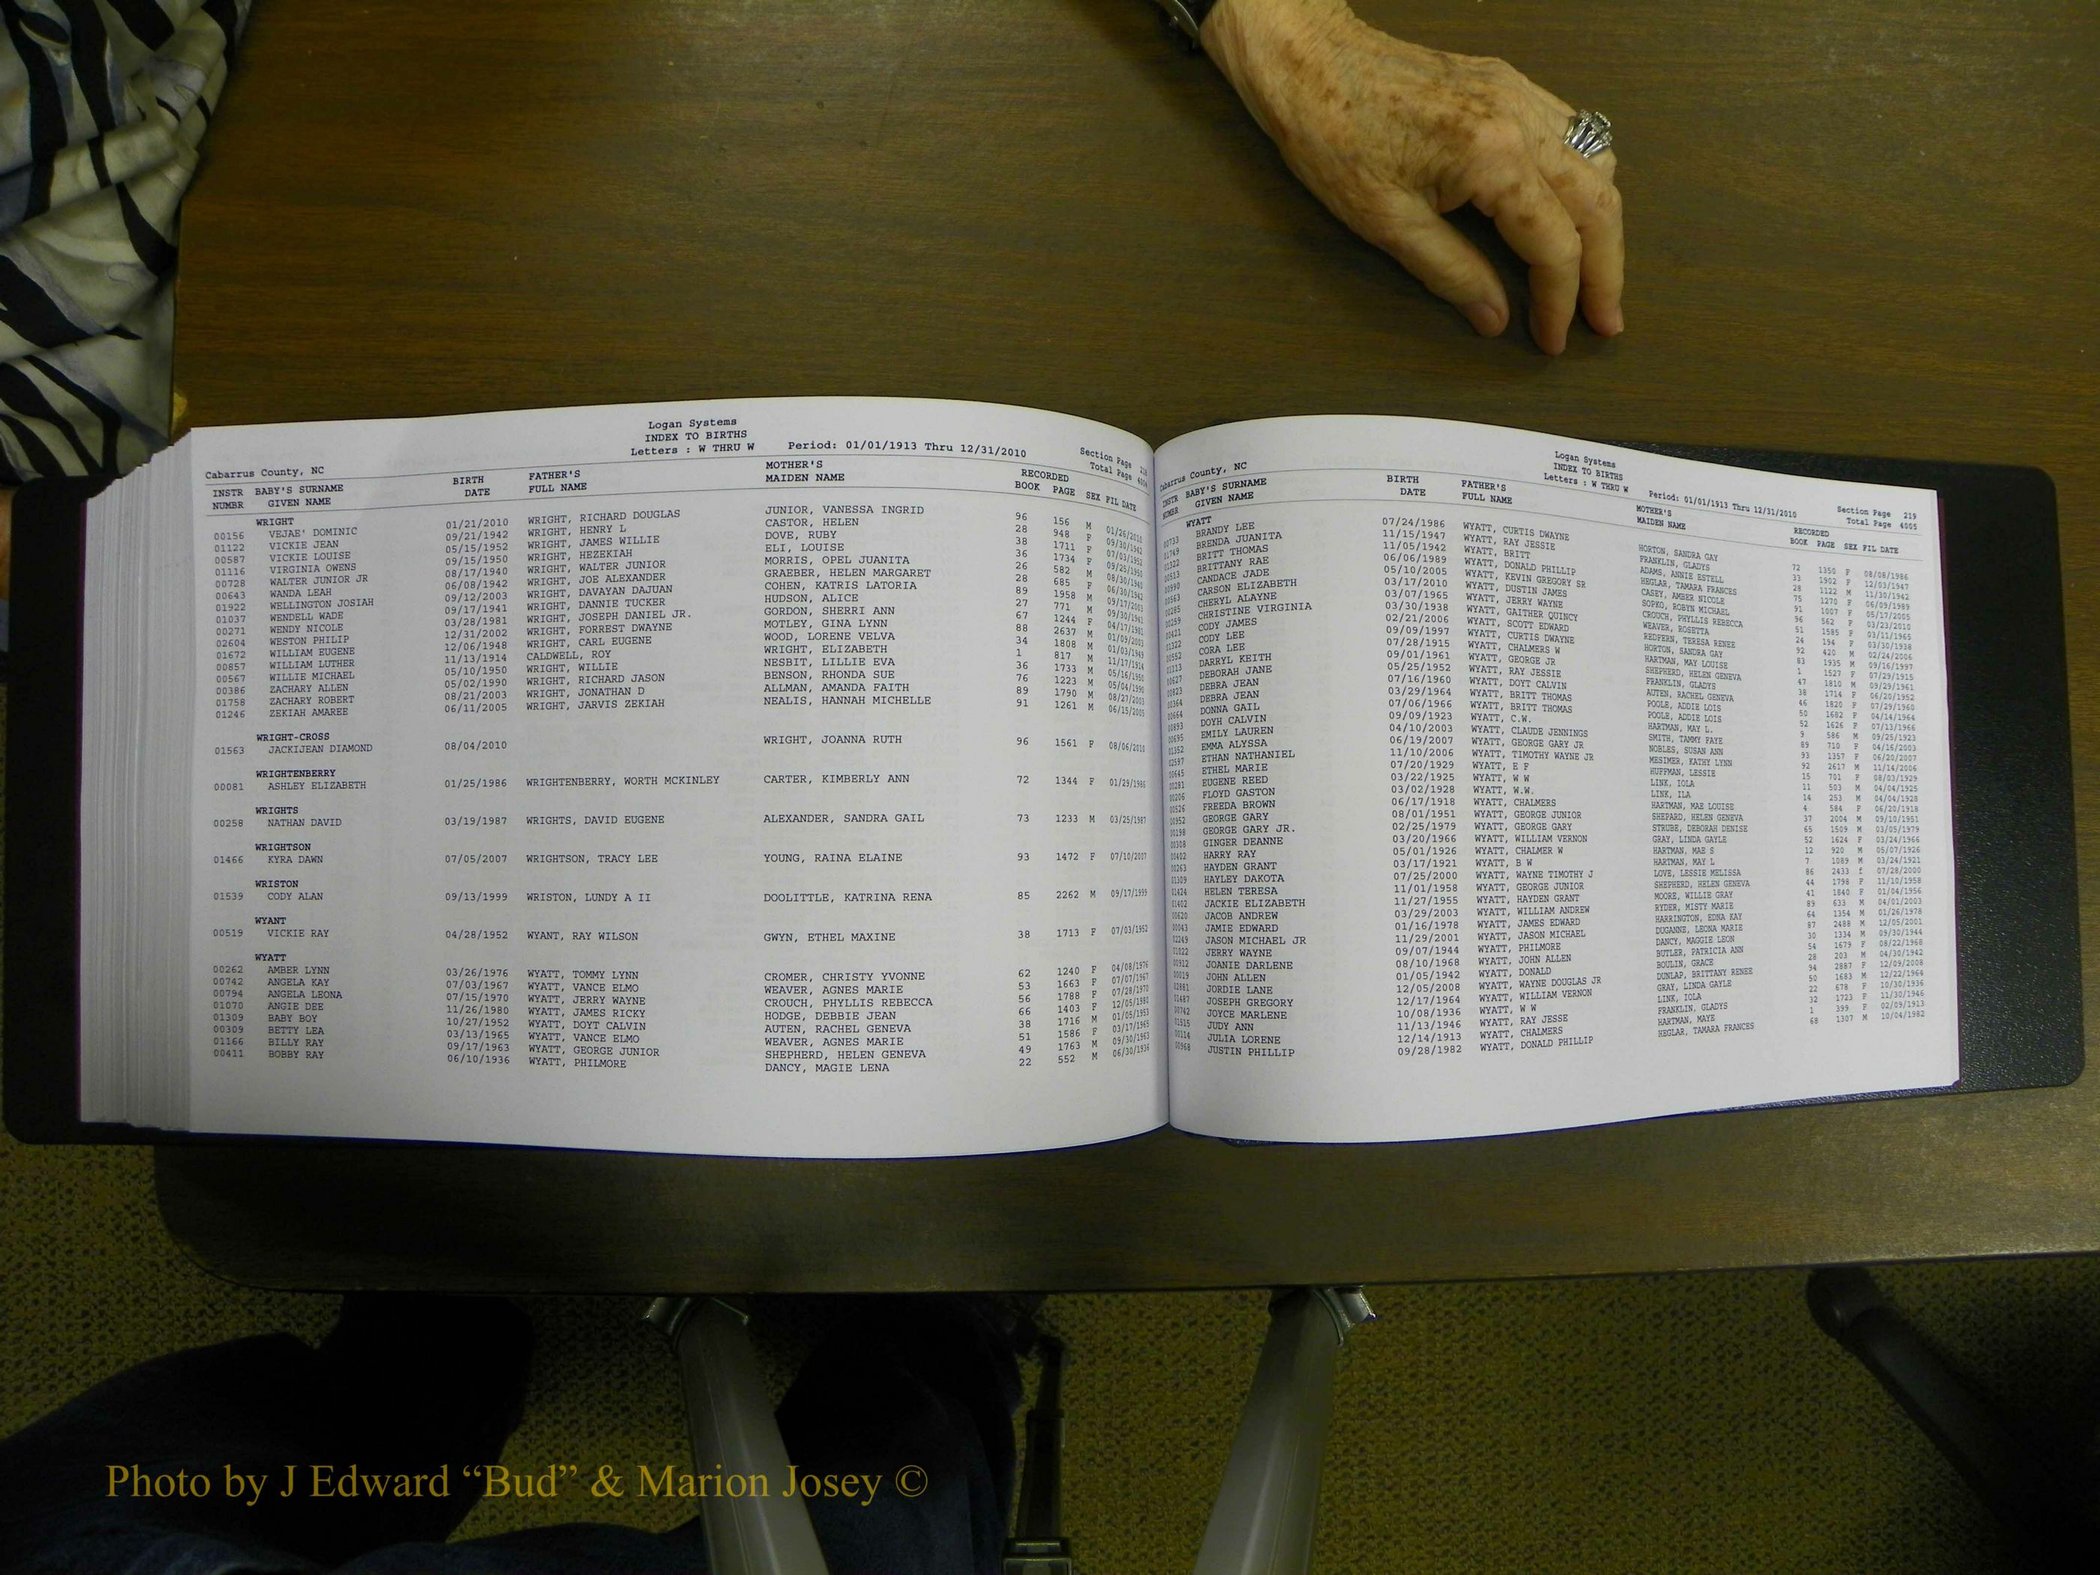 Logan Systems
INDEX TO BIRTHS
Cabarrus County, NC Letters : W THRU W Period: 01/01/1913 Thru 12/31/2010 Section Page 218
Total Page 4004
INSTR BABY'S SURNAME BIRTH FATHER'S MOTHER'S RECORDED
NUMBR GIVEN NAME DATE FULL NAME MAIDEN NAME BOOK PAGE SEX FIL DATE
WRIGHT
00156 VEJAE' DOMINIC 01/21/2010 WRIGHT, RICHARD DOUGLAS JUNIOR, VANESSA INGRID 96 156 M 01/26/2010
01122 VICKIE JEAN 09/21/1942 WRIGHT, HENRY L CASTOR, HELEN 28 948 F 09/30/1942
00587 VICKIE LOUISE 05/15/1952 WRIGHT, JAMES WILLIE DOVE, RUBY 38 1711 F 07/03/1952
01116 VIRGINIA OWENS 09/15/1950 WRIGHT, HEZEKIAH ELI, LOUISE 36 1734 F 09/25/1950
00728 WALTER JUNIOR JR 08/17/1940 WRIGHT, WALTER JUNIOR MORRIS, OPEL JUANITA 26 582 M 08/30/1940
00643 WANDA LEAH 06/08/1942 WRIGHT, JOE ALEXANDER GRAEBER, HELEN MARGARET 28 685 F 06/30/1942
01922 WELLINGTON JOSIAH 09/12/2003 WRIGHT, DAVAYAN DAJUAN COHEN, KATRIS LATORIA 89 1958 M 09/17/2003
01037 WENDELL WADE 09/17/1941 WRIGHT, DANNIE TUCKER HUDSON, ALICE 27 771 M 09/30/1941
00271 WENDY NICOLE 03/28/1981 WRIGHT, JOSEPH DANIEL JR. GORDON, SHERRI ANN 67 1244 F 04/17/1981
02604 WESTON PHILIP 12/31/2002 WRIGHT, FORREST DWAYNE MOTLEY, GINA LYNN 88 2637 M 01/09/2003
01672 WILLIAM EUGENE 12/06/1948 WRIGHT, CARL EUGENE WOOD, LORENE VELVA 34 1808 M 01/03/1949
00857 WILLIAM LUTHER 11/13/1914 CALDWELL, ROY WRIGHT, ELIZABETH 1 817 M 11/17/1914
00567 WILLIE MICHAEL 05/10/1950 WRIGHT, WILLIE NESBIT, LILLIE EVA 36 1733 M 05/16/1950
00386 ZACHARY ALLEN 05/02/1990 WRIGHT, RICHARD JASON BENSON, RHONDA SUE 76 1223 M 05/04/1990
01758 ZACHARY ROBERT 08/21/2003 WRIGHT, JONATHAN D ALLMAN, AMANDA FAITH 89 1790 M 08/27/2003
01246 ZEKIAH AMAREE 06/11/2005 WRIGHT, JARVIS ZEKIAH NEALIS, HANNAH MICHELLE 91 1261 M 06/15/2005
WRIGHT-CROSS
01563 JACKIJEAN DIAMOND 08/04/2010 WRIGHT, JOANNA RUTH 96 1561 F 08/06/2010
WRIGHTENBERRY
00081 ASHLEY ELIZABETH 01/25/1986 WRIGHTENBERRY, WORTH MCKINLEY CARTER, KIMBERLY ANN 72 1344 F 01/29/1986
WRIGHTS
00258 NATHAN DAVID 03/19/1987 WRIGHTS, DAVID EUGENE ALEXANDER, SANDRA GAIL 73 1233 M 03/25/1987
WRIGHTSON
01466 KYRA DAWN 07/05/2007 WRIGHTSON, TRACY LEE YOUNG, RAINA ELAINE 93 1472 F 07/10/2007
WRISTON
01539 CODY ALAN 09/13/1999 WRISTON, LUNDY A II DOOLITTLE, KATRINA RENA 85 2262 M 09/17/1999
WYANT
00519 VICKIE RAY 04/28/1952 WYANT, RAY WILSON GWYN, ETHEL MAXINE 38 1713 F 07/03/1952
WYATT
00262 AMBER LYNN 03/26/1976 WYATT, TOMMY LYNN CROMER, CHRISTY YVONNE 62 1240 F 04/08/1976
00742 ANGELA KAY 07/03/1967 WYATT, VANCE ELMO WEAVER, AGNES MARIE 53 1663 F 07/07/1967
00794 ANGELA LEONA 07/15/1970 WYATT, JERRY WAYNE CROUCH, PHYLLIS REBECCA 56 1788 F 07/28/1970
01070 ANGIE DEE 11/26/1980 WYATT, JAMES RICKY HODGE, DEBBIE JEAN 66 1403 F 12/05/1980
01309 BABY BOY 10/27/1952 WYATT, DOYT CALVIN AUTEN, RACHEL GENEVA 38 1716 M 01/05/1953
00309 BETTY LEA 03/13/1965 WYATT, VANCE ELMO WEAVER, AGNES MARIE 51 1586 F 03/17/1965
01166 BILLY RAY 09/17/1963 WYATT, GEORGE JUNIOR SHEPHERD, HELEN GENEVA 49 1763 M 09/30/1963
00411 BOBBY RAY 06/10/1936 WYATT, PHILMORE DANCY, MAGIE LENA 22 552 M 06/30/1936
Logan Systems
INDEX TO BIRTHS
Cabarrus County, NC Letters : W THRU W Period: 01/01/1913 Thru 12/31/2010 Section Page 219
Total Page 4005
INSTR BABY'S SURNAME BIRTH FATHER'S MOTHER'S RECORDED
NUMBR GIVEN NAME DATE FULL NAME MAIDEN NAME BOOK PAGE SEX FIL DATE
WYATT
00733 BRANDY LEE 07/24/1986 WYATT, CURTIS DWAYNE HORTON, SANDRA GAY 72 1350 F 08/08/1986
01749 BRENDA JUANITA 11/15/1947 WYATT, RAY JESSIE FRANKLIN, GLADYS 33 1902 F 12/03/1947
01322 BRITT THOMAS 11/05/1942 WYATT, BRITT ADAMS, ANNIE ESTELL 28 1122 M 11/30/1942
00513 BRITTANY RAE 06/06/1989 WYATT, DONALD PHILLIP HEGLAR, TAMARA FRANCES 75 1270 F 06/09/1989
00990 CANDACE JADE 05/10/2005 WYATT, KEVIN GREGORY SR CASEY, AMBER NICOLE 91 1007 F 05/17/2005
00563 CARSON ELIZABETH 03/17/2010 WYATT, DUSTIN JAMES SOPKO, ROBYN MICHAEL 96 562 F 03/23/2010
00285 CHERYL ALAYNE 03/07/1965 WYATT, JERRY WAYNE CROUCH, PHYLLIS REBECCA 51 1585 F 03/11/1965
00259 CHRISTINE VIRGINIA 03/30/1938 WYATT, GAITHER QUINCY WEAVER, ROSETTA 24 194 F 03/30/1938
00421 CODY JAMES 02/21/2006 WYATT, SCOTT EDWARD REDFERN, TERESA RENEE 92 420 M 02/24/2006
01322 CODY LEE 09/09/1997 WYATT, CURTIS DWAYNE HORTON, SANDRA GAY 83 1935 M 09/16/1997
00552 CORA LEE 07/28/1915 WYATT, CHALMERS W HARTMAN, MAY LOUISE 1 1527 F 07/29/1915
01313 DARRYL KEITH 09/01/1961 WYATT, GEORGE JR SHEPHERD, HELEN GENEVA 47 1810 M 09/29/1961
00627 DEBORAH JANE 05/25/1952 WYATT, RAY JESSIE FRANKLIN, GLADYS 38 1714 F 06/20/1952
00823 DEBRA JEAN 07/16/1960 WYATT, DOYT CALVIN AUTEN, RACHEL GENEVA 46 1820 F 07/29/1960
00364 DEBRA JEAN 03/29/1964 WYATT, BRITT THOMAS POOLE, ADDIE LOIS 50 1682 F 04/14/1964
00664 DONNA GAIL 07/06/1966 WYATT, BRITT THOMAS POOLE, ADDIE LOIS 52 1626 F 07/13/1966
00893 DOYH CALVIN 09/09/1923 WYATT, C.W. HARTMAN, MAY L. 9 586 M 09/25/1923
00695 EMILY LAUREN 04/10/2003 WYATT, CLAUDE JENNINGS SMITH, TAMMY FAYE 89 710 F 04/16/2003
01352 EMMA ALYSSA 06/19/2007 WYATT, GEORGE GARY JR NOBLES, SUSAN ANN 93 1357 F 06/20/2007
02597 ETHAN NATHANIEL 11/10/2006 WYATT, TIMOTHY WAYNE JR MESIMER, KATHY LYNN 92 2617 M 11/14/2006
00645 ETHEL MARIE 07/20/1929 WYATT, E F HUFFMAN, LESSIE 15 701 F 08/03/1929
00281 EUGENE REED 03/22/1925 WYATT, W W LINK, IOLA 11 503 M 04/04/1925
00206 FLOYD GASTON 03/02/1928 WYATT, W.W. LINK, ILA 14 253 M 04/04/1928
00526 FREEDA BROWN 06/17/1918 WYATT, CHALMERS HARTMAN, MAE LOUISE 4 584 F 06/20/1918
00952 GEORGE GARY 08/01/1951 WYATT, GEORGE JUNIOR SHEPARD, HELEN GENEVA 37 2004 M 09/10/1951
00198 GEORGE GARY JR. 02/25/1979 WYATT, GEORGE GARY STRUBE, DEBORAH DENISE 65 1509 M 03/05/1979
00308 GINGER DEANNE 03/20/1966 WYATT, WILLIAM VERNON GRAY, LINDA GAYLE 52 1624 F 03/24/1966
00402 HARRY RAY 05/01/1926 WYATT, CHALMER W HARTMAN, MAE S 12 920 M 05/07/1926
00263 HAYDEN GRANT 03/17/1921 WYATT, B W HARTMAN, MAY L 7 1089 M 03/24/1921
01309 HAYLEY DAKOTA 07/25/2000 WYATT, WAYNE TIMOTHY J LOVE, LESSIE MELISSA 86 2433 f 07/28/2000
01424 HELEN TERESA 11/01/1958 WYATT, GEORGE JUNIOR SHEPHERD, HELEN GENEVA 44 1798 F 11/10/1958
01402 JACKIE ELIZABETH 11/27/1955 WYATT, HAYDEN GRANT MOORE, WILLIE GRAY 41 1840 F 01/04/1956
00620 JACOB ANDREW 03/29/2003 WYATT, WILLIAM ANDREW RYDER, MISTY MARIE 89 633 M 04/01/2003
00043 JAMIE EDWARD 01/16/1978 WYATT, JAMES EDWARD HARRINGTON, EDNA KAY 64 1354 M 01/26/1978
02249 JASON MICHAEL JR 11/29/2001 WYATT, JASON MICHAEL DUGANNE, LEONA MARIE 87 2488 M 12/05/2001
01022 JERRY WAYNE 09/07/1944 WYATT, PHILMORE DANCY, MAGGIE LEON 30 1334 M 09/30/1944
00912 JOANIE DARLENE 08/10/1968 WYATT, JOHN ALLEN BUTLER, PATRICIA ANN 54 1679 F 08/22/1968
00019 JOHN ALLEN 01/05/1942 WYATT, DONALD BOULIN, GRACE 28 203 M 04/30/1942
02881 JORDIE LANE 12/05/2008 WYATT, WAYNE DOUGLAS JR DUNLAP, BRITTANY RENEE 94 2887 F 12/09/2008
01487 JOSEPH GREGORY 12/17/1964 WYATT, WILLIAM VERNON GRAY, LINDA GAYLE 50 1683 M 12/22/1964
00742 JOYCE MARLENE 10/08/1936 WYATT, W W LINK, IOLA 22 678 F 10/30/1936
01515 JUDY ANN 11/13/1946 WYATT, RAY JESSE FRANKLIN, GLADYS 32 1723 F 11/30/1946
00114 JULIA LORENE 12/14/1913 WYATT, CHALMERS HARTMAN, MAYE 1 399 F 02/09/1913
00968 JUSTIN PHILLIP 09/28/1982 WYATT, DONALD PHILLIP HEGLAR, TAMARA FRANCES 68 1307 M 10/04/1982
Photo by J Edward “Bud” & Marion Josey ©